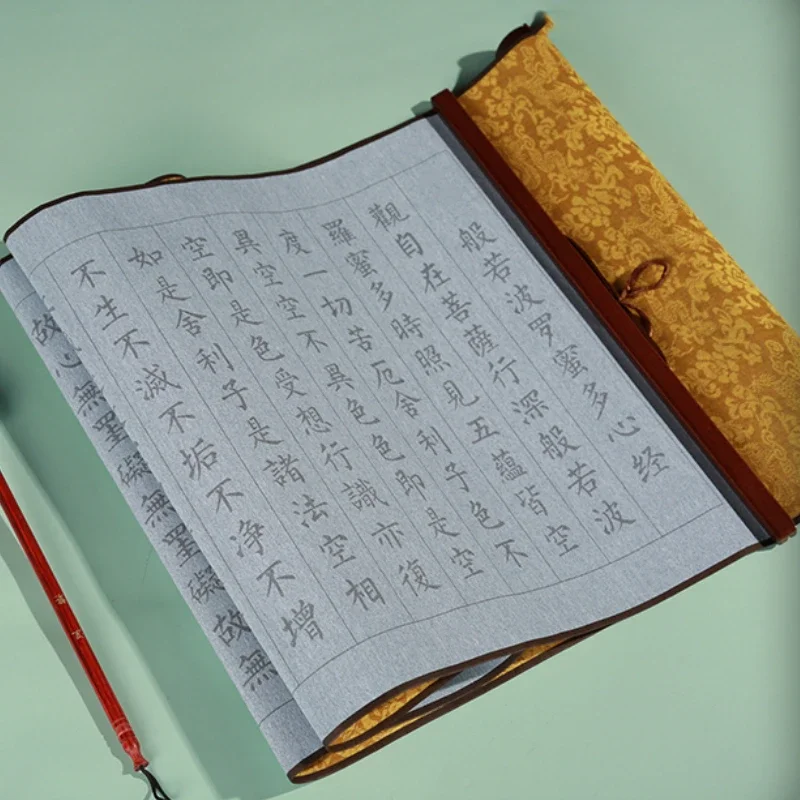 般若波罗蜜多心经
觀自在菩薩行深般若波
羅蜜多時照見五蘊皆空
度一切苦厄舍利子色不
異空空不異色色即是空
空即是色受想行識亦復
如是舍利子是諸法空相
不生不滅不垢不净不增
故心無罣礙無罣礙故無